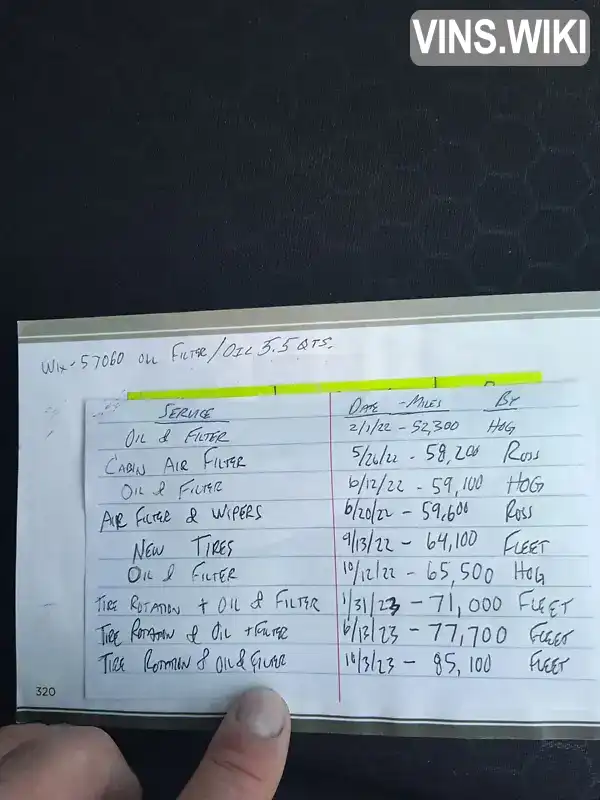 VINS.WIKI
WIX-57060 OIL FILTER/OIL 5.5 QTS.
SERVICE DATE - MILES BY
OIL & FILTER 2/1/22 - 52,300 HOG
CABIN AIR FILTER 5/26/22 - 58,200 ROSS
OIL & FILTER 6/12/22 - 59,100 HOG
AIR FILTER & WIPERS 6/20/22 - 59,600 ROSS
NEW TIRES 9/13/22 - 64,100 FLEET
OIL & FILTER 10/12/22 - 65,500 HOG
TIRE ROTATION + OIL & FILTER 1/31/23 - 71,000 FLEET
TIRE ROTATION & OIL + FILTER 6/13/23 - 77,700 FLEET
TIRE ROTATION & OIL & FILTER 10/3/23 - 85,100 FLEET
320